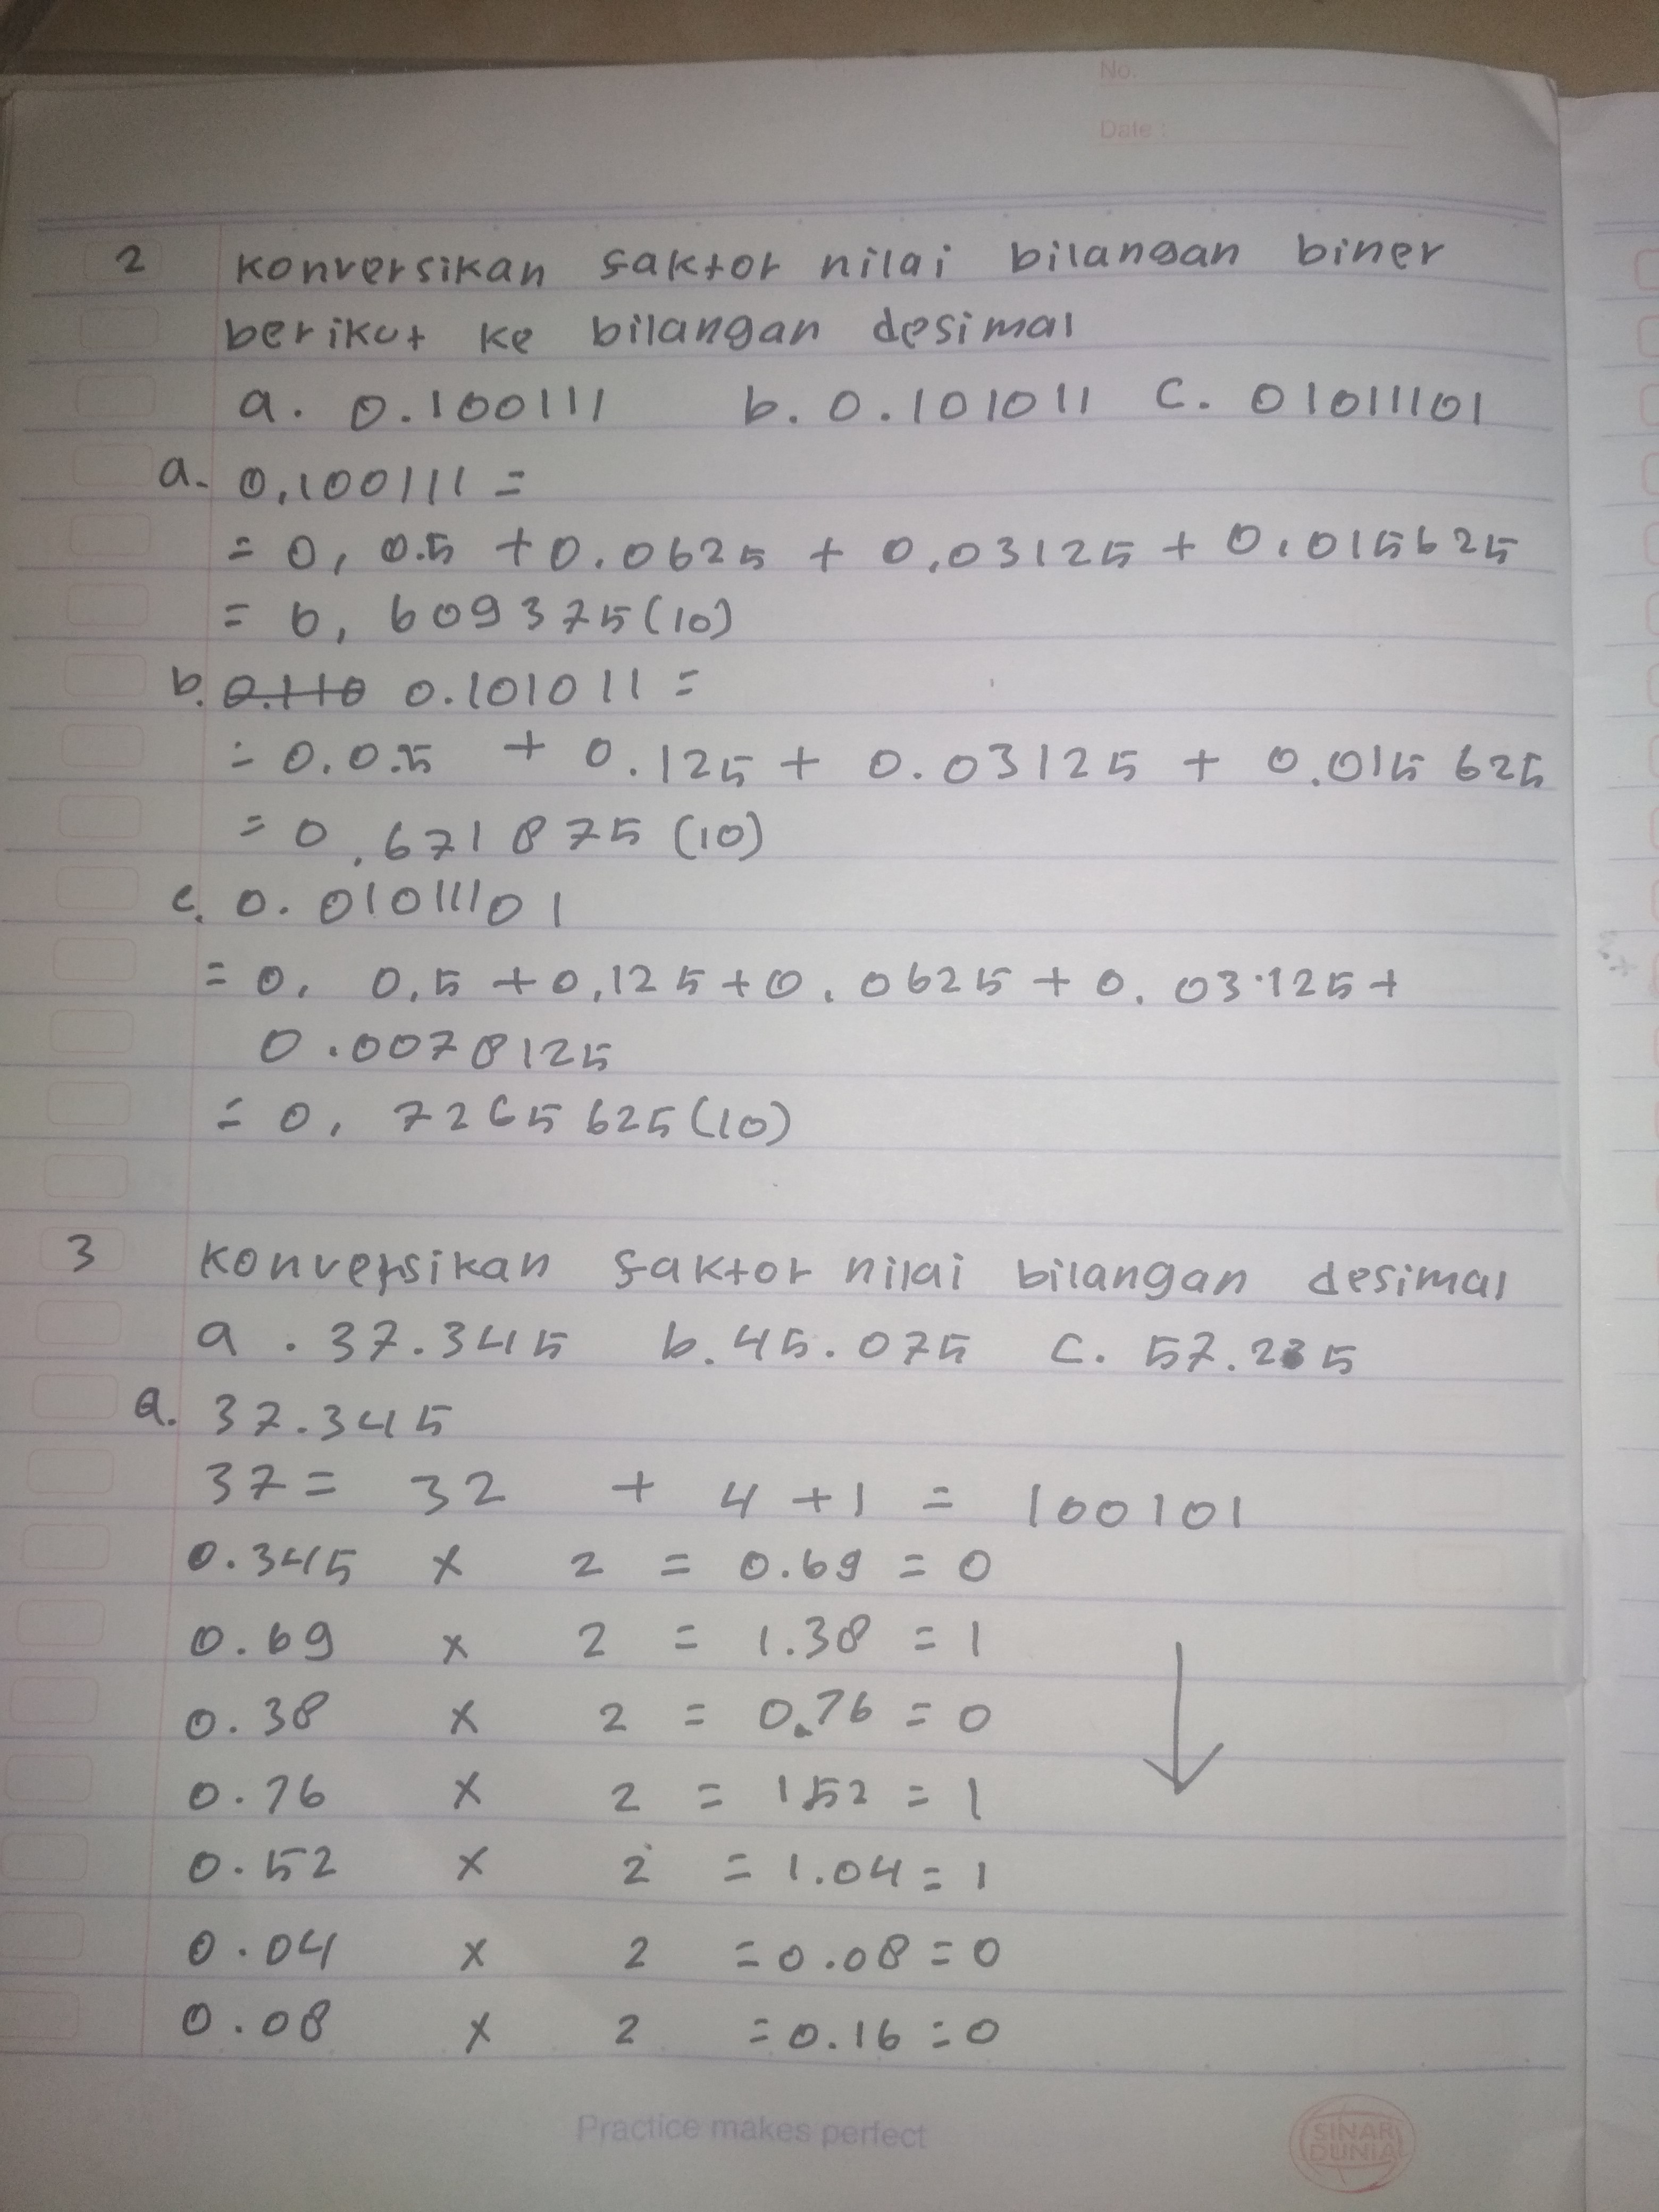 No.
Date :
2 Konversikan faktor nilai bilangan biner
berikut ke bilangan desimal
a. 0.100111 b. 0.101011 c. 01011101
a. 0,100111 =
= 0, 0.5 + 0.0625 + 0,03125 + 0.015625
= 0, 609375 (10)
b. 0.110 0.101011 =
= 0.0.5 + 0.125 + 0.03125 + 0.015625
= 0.671875 (10)
c. 0.01011101
= 0, 0,5 + 0,125 + 0.0625 + 0.03125 +
0.0078125
= 0, 7265625 (10)
3 Konversikan faktor nilai bilangan desimal
a. 37.345 b. 45.075 c. 57.235
a. 37.345
37 = 32 + 4 + 1 = 100101
0.345 x 2 = 0.69 = 0
0.69 x 2 = 1.38 = 1
0.38 x 2 = 0.76 = 0
0.76 x 2 = 1.52 = 1
0.52 x 2 = 1.04 = 1
0.04 x 2 = 0.08 = 0
0.08 x 2 = 0.16 = 0
Practice makes perfect
SINAR
DUNIA